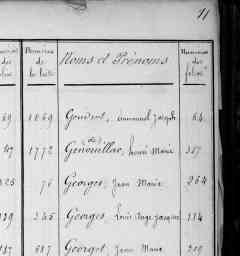 11
Numéros
de
la liste
Noms et Prénoms
Numéros
des
folios
69 1869 Gouvent, Emmanuel Joseph 64
47 1772 Genouillac, (de) Henri Marie 357
76 Georges, Jean Marie 264
245 Georges, Louis Ange Jacques 114
687 Georget, Jean Marie 209